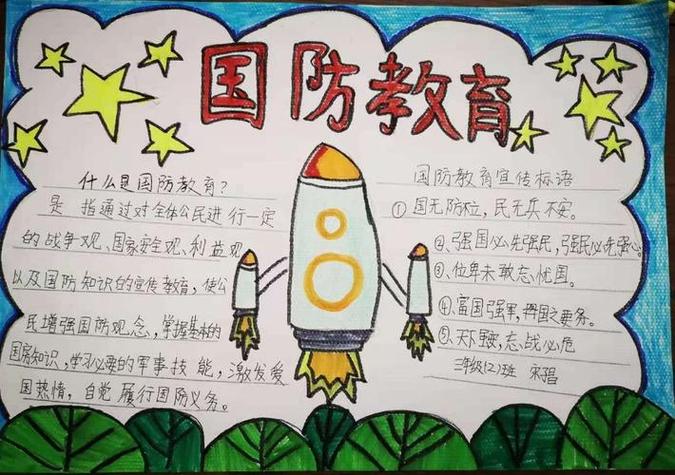 国防教育
什么是国防教育?
是 指通过对全体公民进行一定
的战争观、国家安全观、利益观
以及国防知识的宣传教育,使公
民增强国防观念,掌握基本的
国防知识,学习必要的军事技能,激发爱
国热情,自觉履行国防义务。
国防教育宣传标语
①国无防不立,民无兵不安。
②.强国必先强民,强民必先强心。
③.位卑未敢忘忧国。
④.富国强军,兴国之要务。
⑤.天下虽安,忘战必危
三年级(2)班